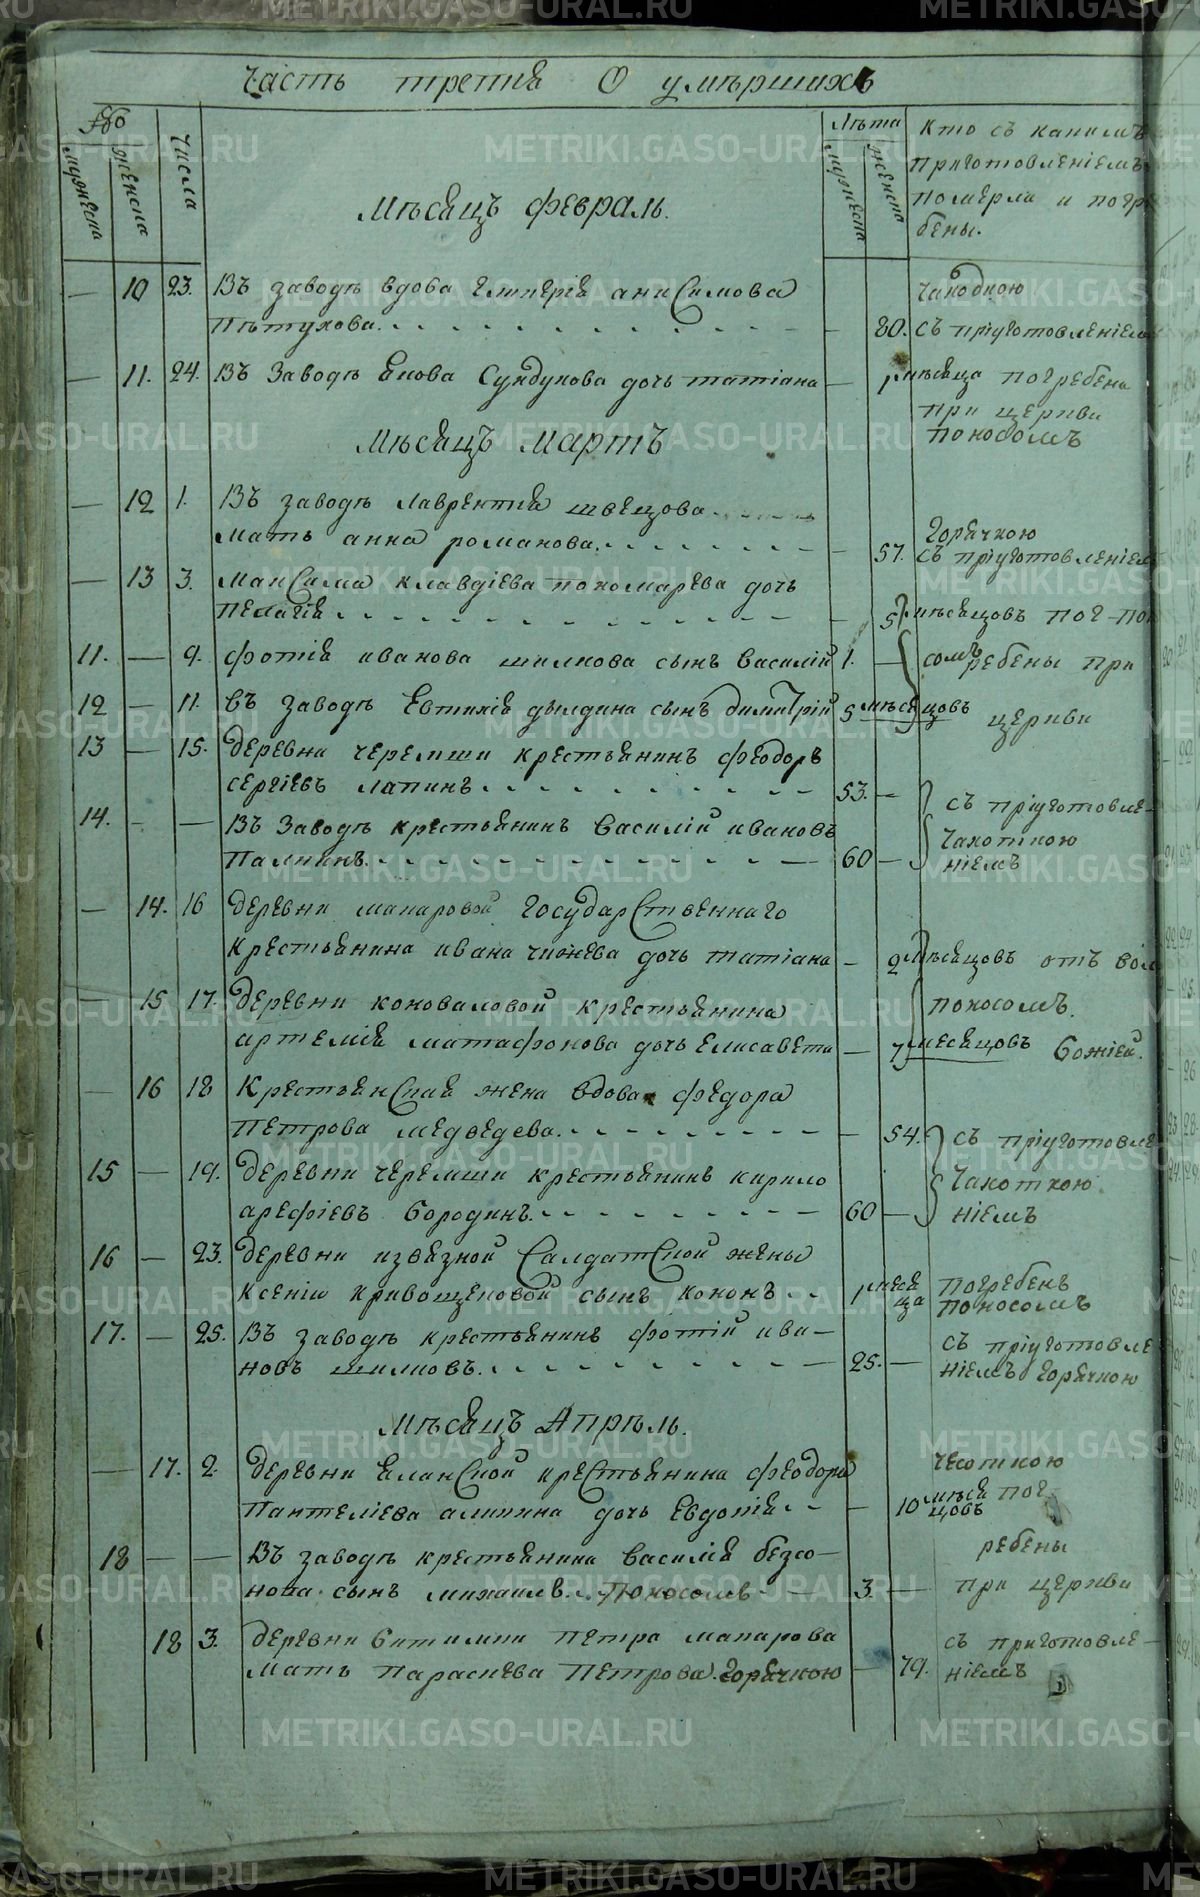 Часть третия О умѣршихъ
№
мужеска
женска
Числа
Лѣта
мужеска
женска
Кто съ какимъ
приготовленіемъ
померли и погре
бены.
Мѣсяцъ февраль.
— 10 23. Въ заводѣ вдова Анисимова
Пѣтухова. — 80. Чахоткою съ пріуготовленіемъ
— 11. 24. Въ Заводѣ Якова Сундукова дочь татіана — 1 мѣсяца погребена
при церкви
поносомъ
Мѣсяцъ Мартъ
— 12 1. Въ заводѣ Лаврентія швецова
мать анна романова. — 57. Горячкою съ пріуготовленіемъ
— 13 3. Максима клавдіева пономарева дочь
пелагія — 5 мѣсяцовъ пог- пон
11. — 9. фотія иванова шилкова сынъ Василій 1. — сомъ ребены при
12 — 11. Въ заводѣ Евтихія дылдина сынъ димитрій 5 мѣсяцовъ церкви
13 — 15. деревни черемши крестьянинъ феодоръ
сергіевъ лапинъ. 53. — съ пріуготовле-
14. — — Въ Заводѣ крестьянинъ Василій ивановъ Чахоткою
Палкинъ. 60 — ніемъ
— 14. 16 деревни макаровой государственнаго
крестьянина ивана чижева дочь татіана — 2 мѣсяцовъ отъ вол
— 15 17. деревни коноваловой крестьянина поносомъ.
артемія матафонова дочь елисавета — 7 месяцовъ божіей.
— 16 18 Крестьянская жена вдова федора
петрова медведева. — 54. съ пріуготовле
15 — 19. деревни черемши крестьянинъ кирило Чахоткою
арефіевъ бородинъ. 60 — ніемъ
16 — 23. деревни извязной Салдатской жены
ксеніи кривощековой сынъ кононъ 1 месяца погребенъ
поносомъ
17. — 25. Въ заводѣ крестьянинъ фотій ива- съ пріуготовле
новъ шилковъ. 25. — ніемъ горячкою
Мѣсяцъ Апрѣль.
— 17. 2. деревни Еланской крестьянина феодора чесоткою
Пантелѣева дочь Евдокія — 10 мѣсяцовъ пог-
18 — — Въ заводѣ крестьянина Василія безсо- ребены
нова сынъ михаилъ. Поносомъ 3. — при церкви
18 3. деревни петра макарова съ приготовле-
мать параскева петрова. горячкою — 79. ніемъ
METRIKI.GASO-URAL.RU